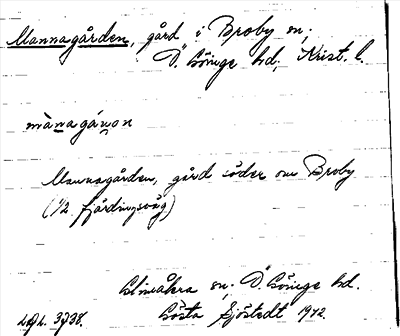 Mannagården, gård i Broby sn;
Ö. Göinge hd; Krist. l.
Mannagården, gård söder om Broby
(1/2 fjärdingsväg)
Glimåkra sn; Ö. Göinge hd.
Gösta Sjöstedt 1942.